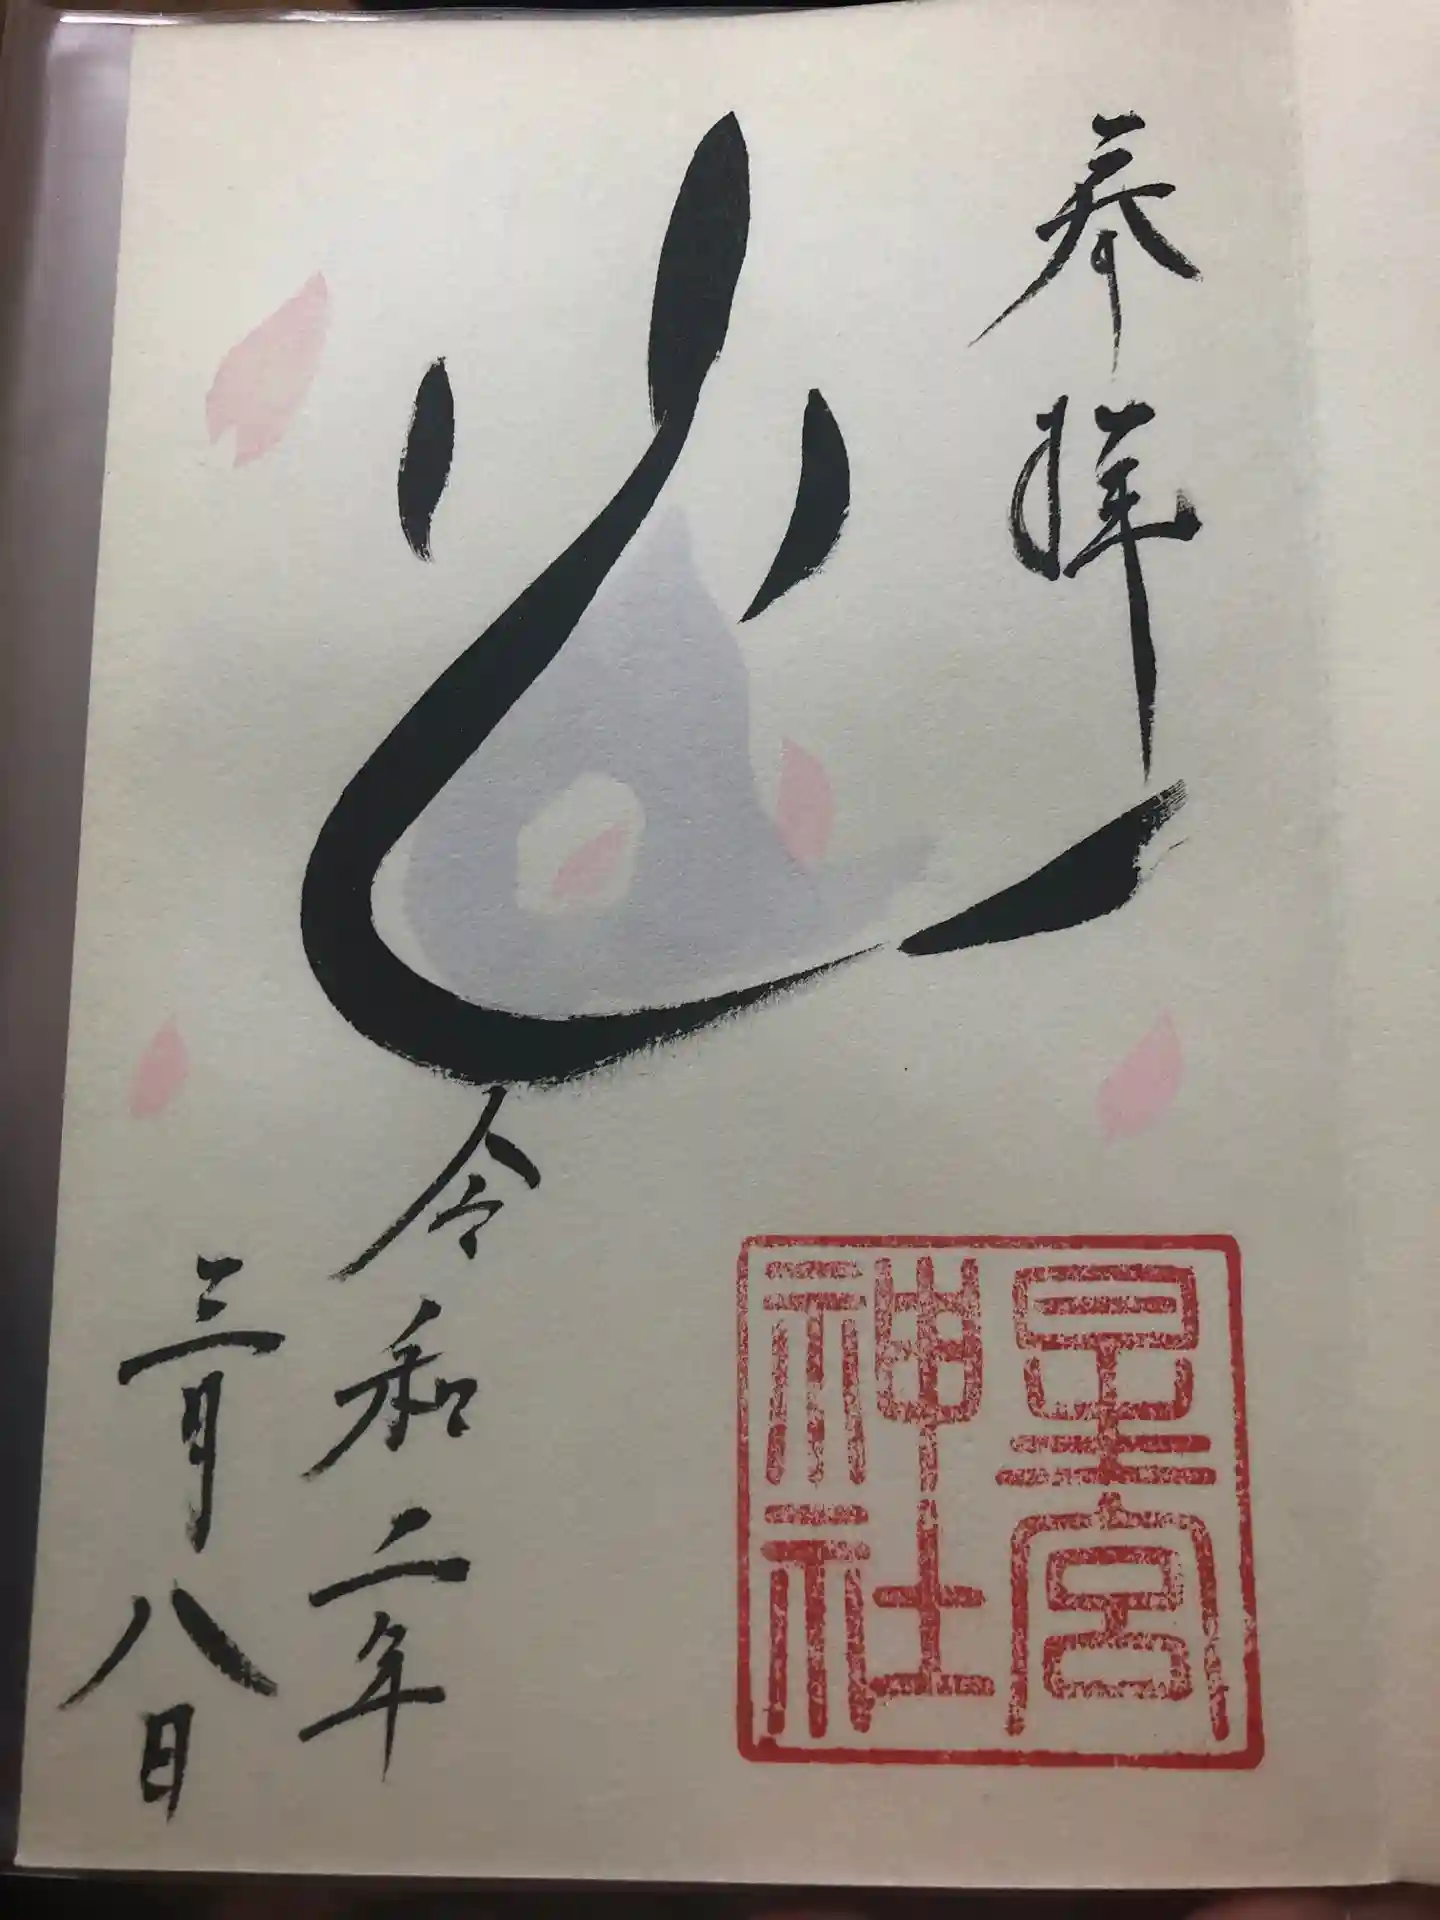 奉拝
星宮
神社
令和二年
三月八日